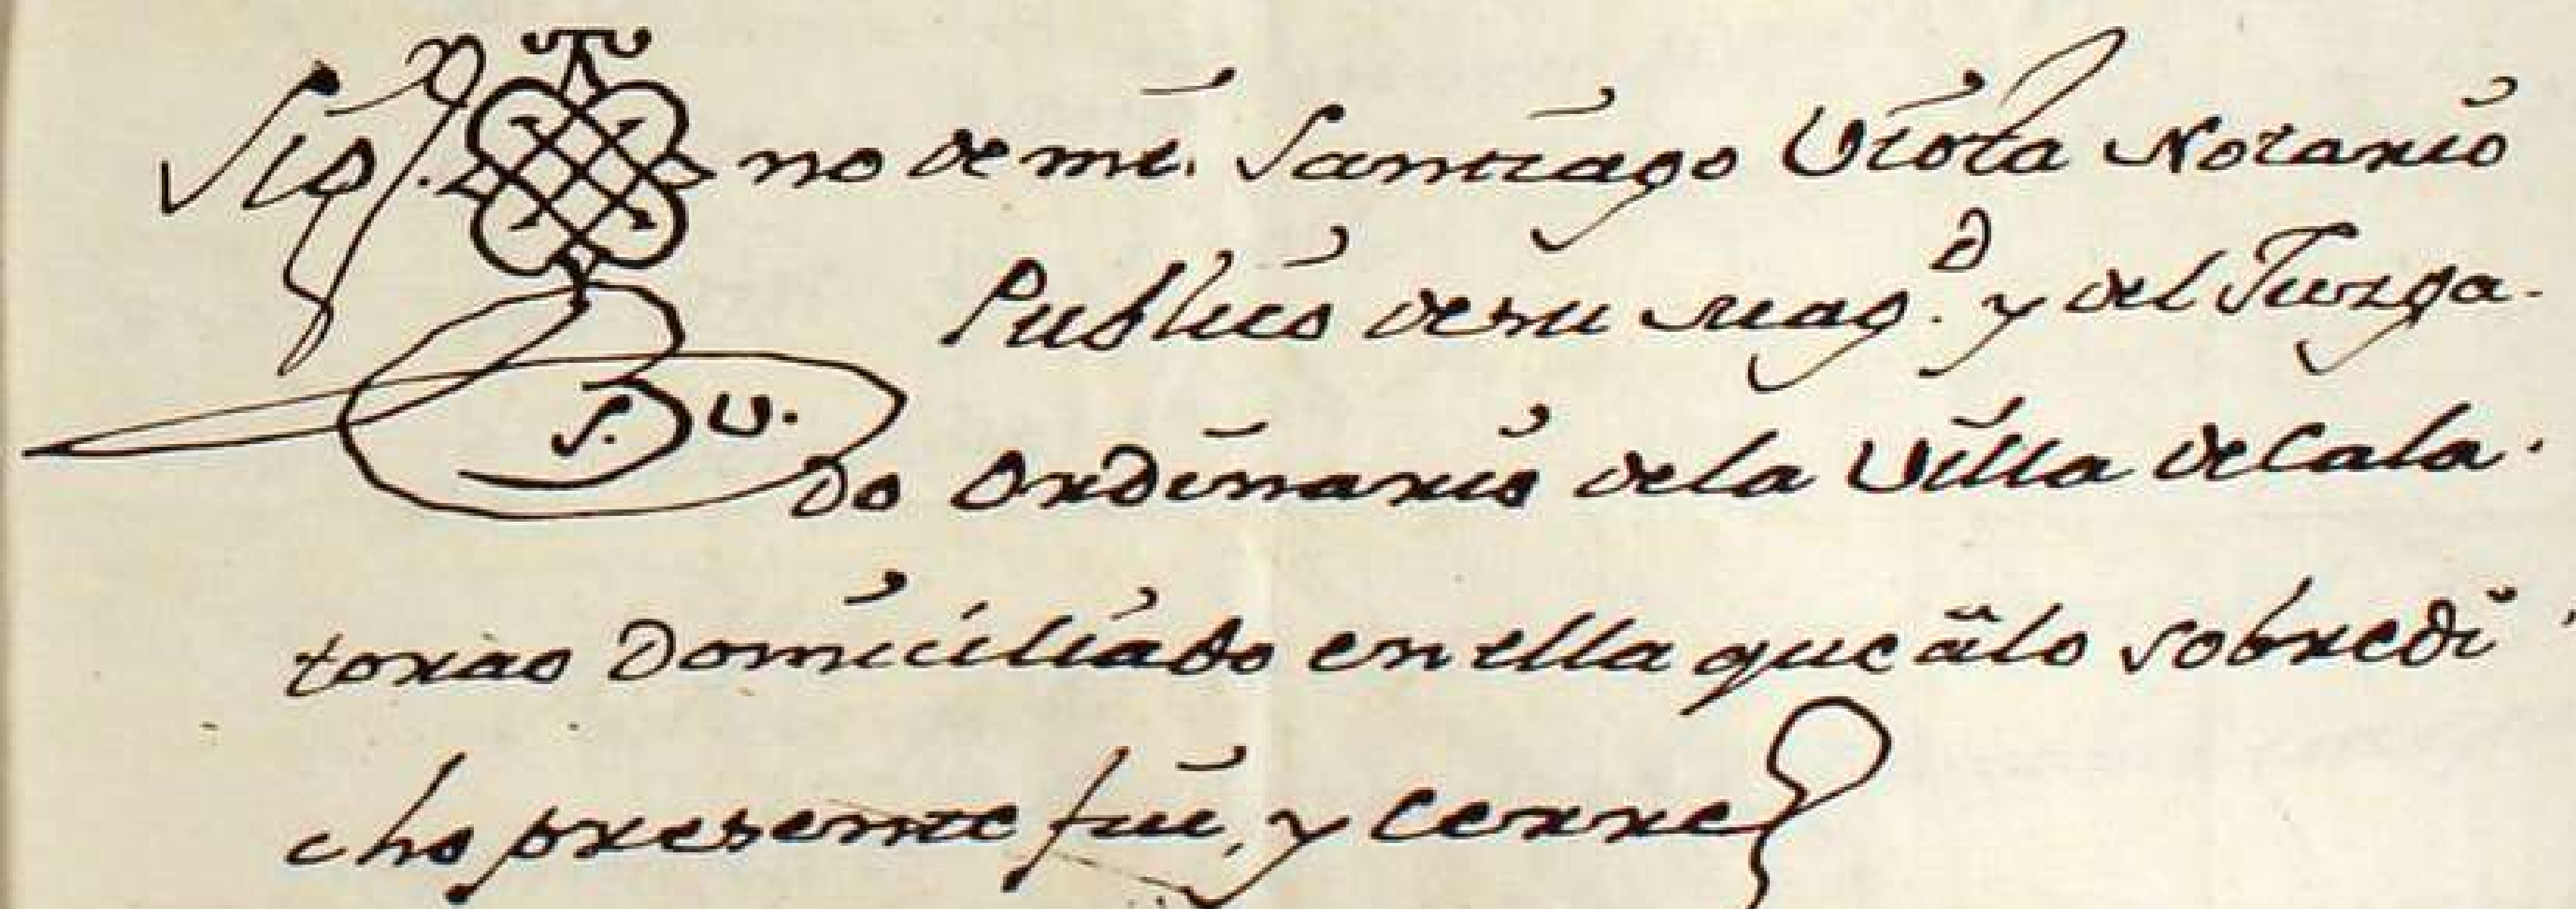 Sig no de mi Santiago Viota Notario
Publico de su Mag.d y del Juzga-
S. V.
do Ordinario de la Villa de Cala-
torao Domiciliado en ella que â lo sobredi
cho presente fui, y Cerre